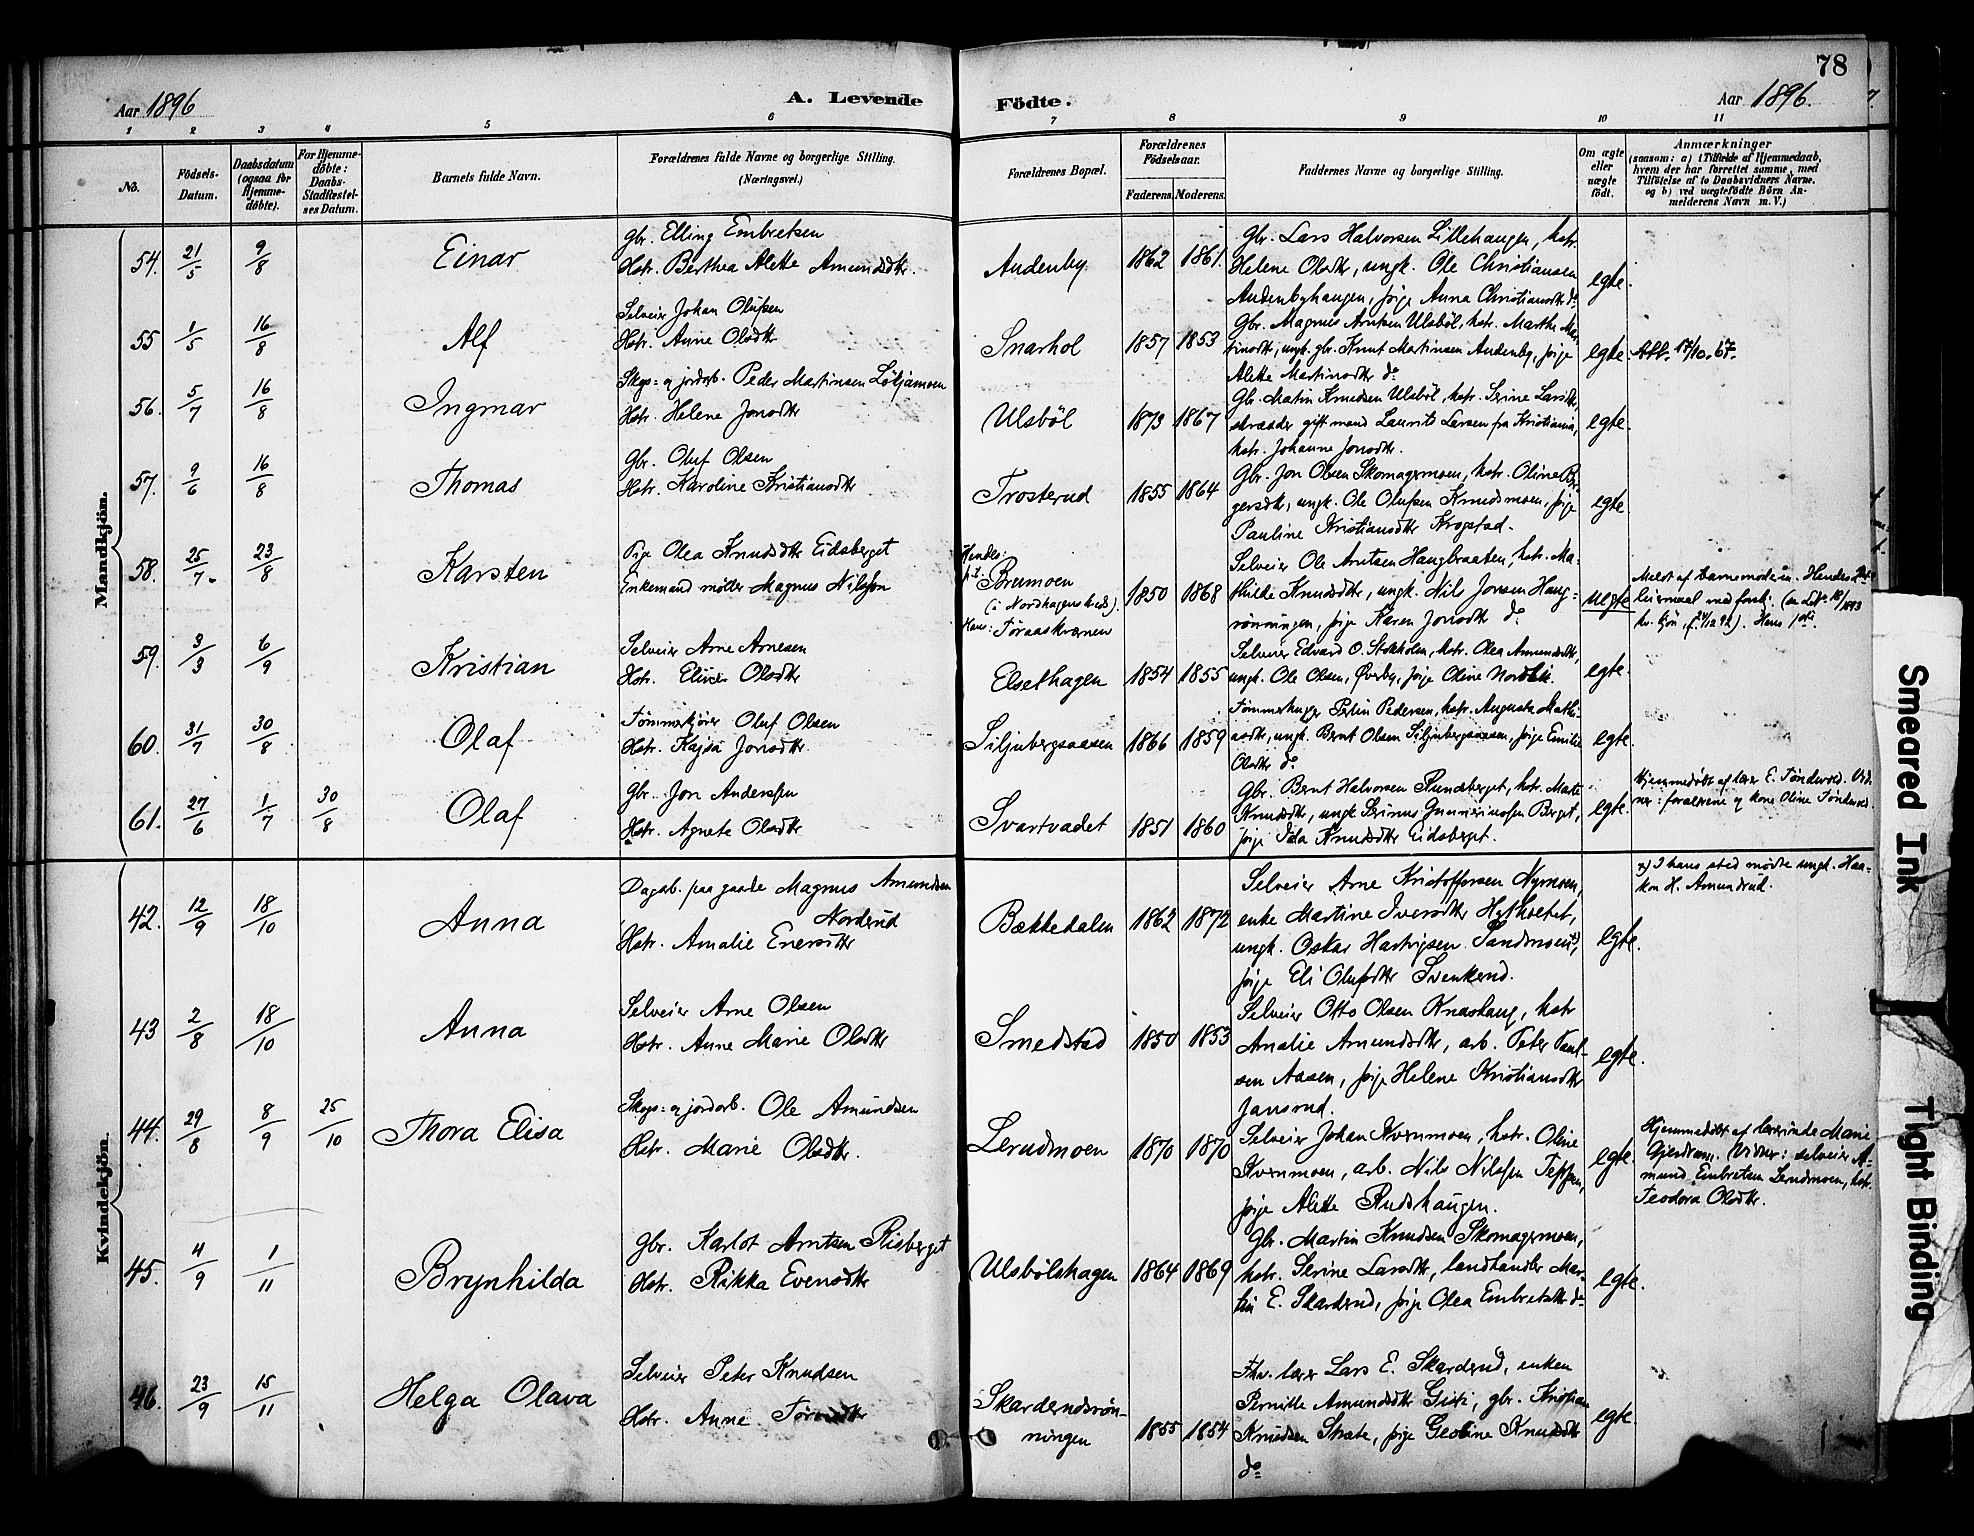 78
Aar 1896
A. Levende Födte.
Aar 1896.
1 2 3 4 5 6 7 8 9 10 11
No.
Födsels-Datum.
Daabsdatum (ogsaa for Hjemme-döbte).
For Hjemme-döbte: Daabs-Stadfæstel-ses Datum.
Barnets fulde Navn.
Forældrenes fulde Navne og borgerlige Stilling. (Næringsvei.)
Forældrenes Bopæl.
Forældrenes Födselsaar.
Faderens. Moderens.
Faddernes Navne og borgerlige Stilling.
Om ægte eller uægte födt.
Anmærkninger
(saasom: a) i Tilfælde af Hjemmedaab, hvem der har forrettet samme, med Tilföielse af to Daabsvidners Navne, og b) ved uægtefödte Börn Anmelderens Navn m. V.)
Mandkjön.
54. 21/5 9/8 Einar
Gbr. Elling Embretsen
Hstr. Berthea Alette Amundsdtr.
Audenby 1862 1861.
Gbr. Lars Halvorsen Lillehaugen, hstr.
Helene Olsdtr, ungk. Ole Christiansen
Audenbyhaugen, pige Anna Christiansdtr do
egte.
55 1/5 16/8 Alf
Selveier Johan Olufsen
Hstr. Anne Olsdtr
Snarhol 1857 1853
Gbr. Magnus Arntsen Ulsböl, hstr. Marthe Mar-
tinsdtr, ungk. gbr. Knut Martinsen Audenby, pige
Alette Martinsdtr do
egte. Att. 17/10-67.
56. 5/7 16/8 Ingmar
Skogs= og jordarb. Peder Martinsen
Hstr. Helene Jonsdtr
Ulsböl 1873 1867
Gbr. Martin Knudsen Ulsböl, hstr. Serine Larsdtr,
skrædder gift mand Laurits Larsen fra Kristiania,
hstr. Johanne Jonsdtr.
egte.
57. 9/6 16/8 Thomas
Gbr. Oluf Olsen
Hstr. Karoline Kristiansdtr
Trosterud 1855 1864
Gbr. Jon Olsen Skomagermoen, hstr. Oline Bir-
gersdtr, ungk. Ole Olufsen Knudsmoen, pige
Pauline Kristiansdtr Krogstad.
egte.
58. 25/7. 23/8 Karsten
Pige Olea Knudsdtr Eidsberget
Enkemand møller Magnus Nilssen
Hendes:
Brermoen
(i Nordhagens kreds).
Hans: Føraaskværnen
1850 1868
Selveier Ole Arntsen Haugbraaten, hstr. Ma-
thilde Knudsdtr, ungk. Nils Jonsen Haug-
rønningen, pige Karen Jonsdtr do
uegte
Meldt af barnemoderen. Hendes 2det
leiermaal
kv. kjøn, Hans 1ste.
59. 3/3 6/9 Kristian
Selveier Arne Arnesen
Hstr. Eline Olsdtr
Elsethagen 1854 1855
Selveier Edvard O. Stokholm, hstr. Olea Amundsdtr,
ungk. Ole Olsen, Øverby, pige Oline Nordbæk.
egte.
60. 31/7 30/8 Olaf
Tømmerkjører Oluf Olsen
Hstr. Kajsa Jonsdtr
Siljubergsaasen 1866 1859
Tømmerhugger Pedersen, hstr. Augusta Mathi-
asdtr, ungk. Bernt Olsen Siljubergsaasen, pige Emilie
Olsdtr do
egte.
61. 27/6 1/7 30/8 Olaf
Gbr. Jon Anderssen
Hstr. Agnete Olsdtr
Svartvadet 1851 1860
Gbr. Bernt Halvorsen Rundberget, hstr. Marte
Knudsdtr, ungk. Serinus Gunneriussen Berget,
pige Ida Knudsdtr Eidsberget.
egte.
Hjemmedøbt af lærer E. Tøndervold. Vid-
ner: forældrene og kone Oline Tøndervold.
Kvindekjön.
42. 12/9 18/10 Anna
Dagarb. paa gaarde Magnus Amundsen
Norderud
Hstr. Amalie Enersdtr
Bækkedalen 1862 1872
Selveier Arne Kristoffersen Nymoen,
enke Martine Iversdtr
ungk. Oskar Hartvigsen Sandmoen x),
pige Eli Olufsdtr Svenkerud.
egte.
x) I hans sted mødte ungk. Haa-
kon H. Amundrud.
43 2/8 18/10 Anna
Selveier Arne Olsen
Hstr. Anne Marie Olsdtr
Smedstad 1850 1853
Selveier Otto Olsen Knashaug, hstr
Amalie Amundsdtr, arb. Peter Paul-
sen Aasen, pige Helene Kristiansdtr
Jansrud.
egte.
44. 29/8 8/9 25/10 Thora Elisa
Skogs= og jordarb. Ole Amundsen
Hstr. Marie Olsdtr.
Lerudmoen 1870 1870
Selveier Johan Kvernmoen, hstr. Oline
Kvernmoen, arb. Nils Nilssen Teppen,
pige Alette Rudshaugen.
egte.
Hjemmedøbt af lærerinde Marie
Gjerdrum. Vidner: selveier A-
mund Embretsen Lerudmoen, hstr.
Teodora Olsdtr.
45. 4/9 1/11 Brynhilda
Gbr. Karlot Arntsen Risberget
Hstr. Rikka Evensdtr
Ulsbölshagen 1864 1869
Gbr. Martin Knudsen Skomagermoen,
hstr. Serine Larsdtr, landhandler Mar-
tin E. Skarderud, pige Olea Embretsdtr do
egte.
46. 23/9 15/11 Helga Olava
Selveier Peter Knudsen
Hstr. Anne
Skarderudsrøn-
ningen
1855 1854
Fhv. lærer Lars E. Skarderud, enken
Pernille Amundsdtr Gisti, gbr. Kristian
Knudsen Skate, pige Geoline Knudsdtr
do
egte.
Smeared Ink
Tight Binding